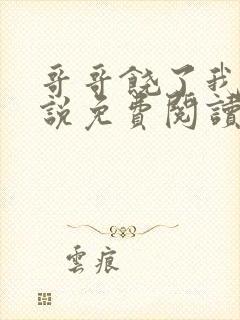 哥哥饶了我
說免費閱讀
雲痕